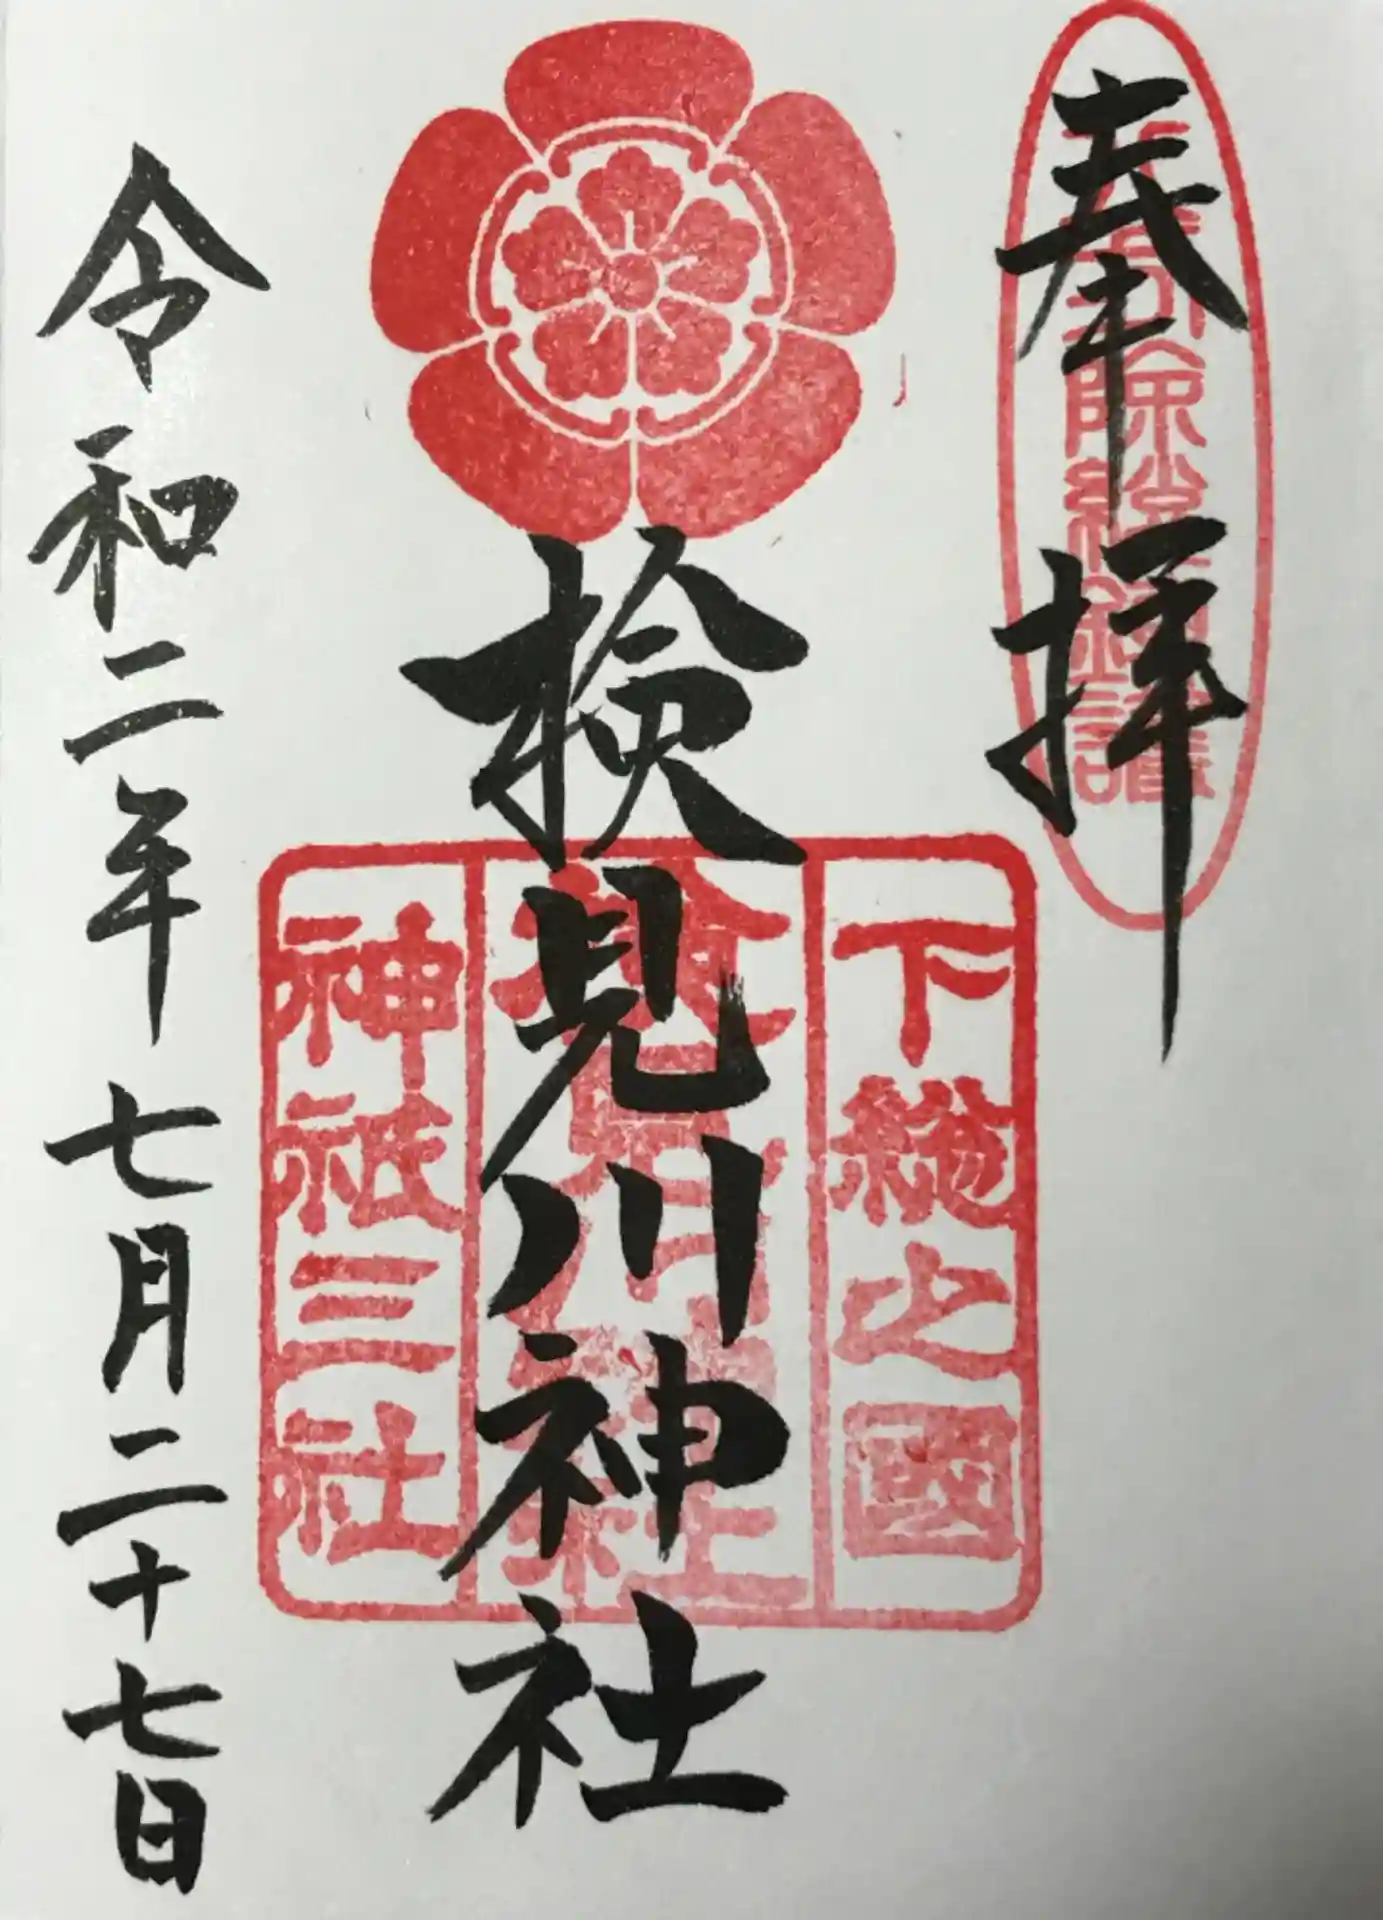 奉拝
八方除総鎮護
検見川神社
下総之國
検見川神社
神祇三社
令和二年七月二十七日